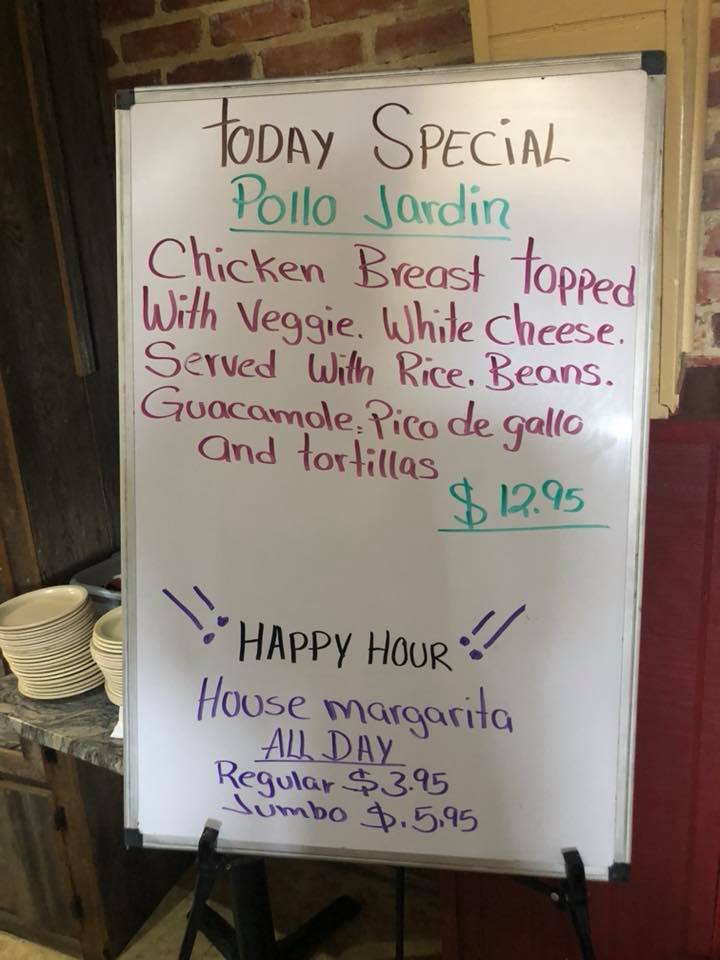 TODAY SPECiAL
Pollo Jardin
Chicken Breast topped
With Veggie. White Cheese.
Served With Rice. Beans.
Guacamole. Pico de gallo
and tortillas
$12.95
!! HAPPY HOUR !!
House margarita
ALL DAY
Regular $3.95
Jumbo $.5.95